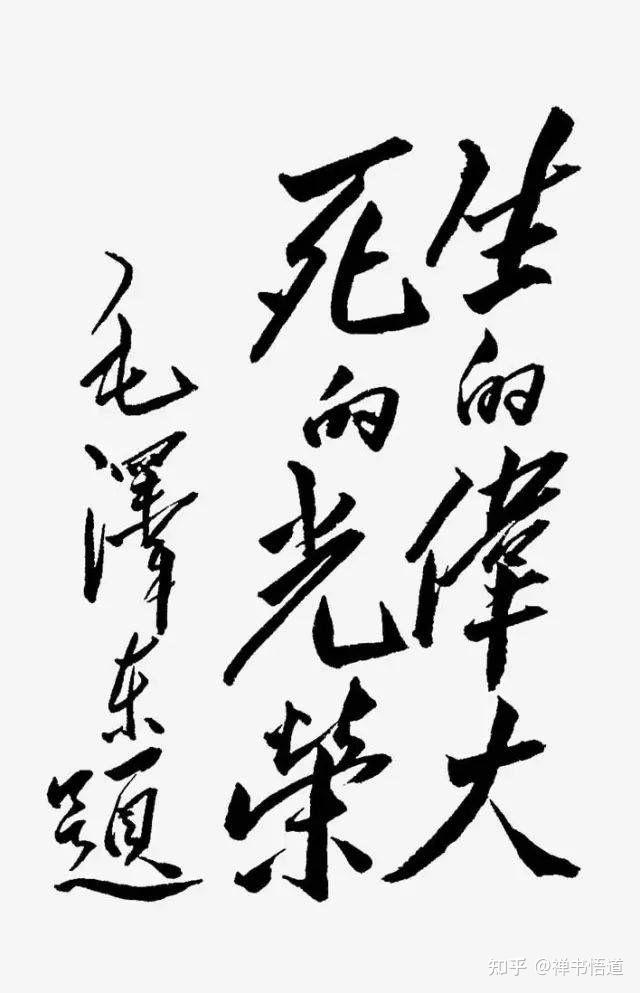 生的偉大
死的光榮
毛澤东題
知乎 @禅书悟道